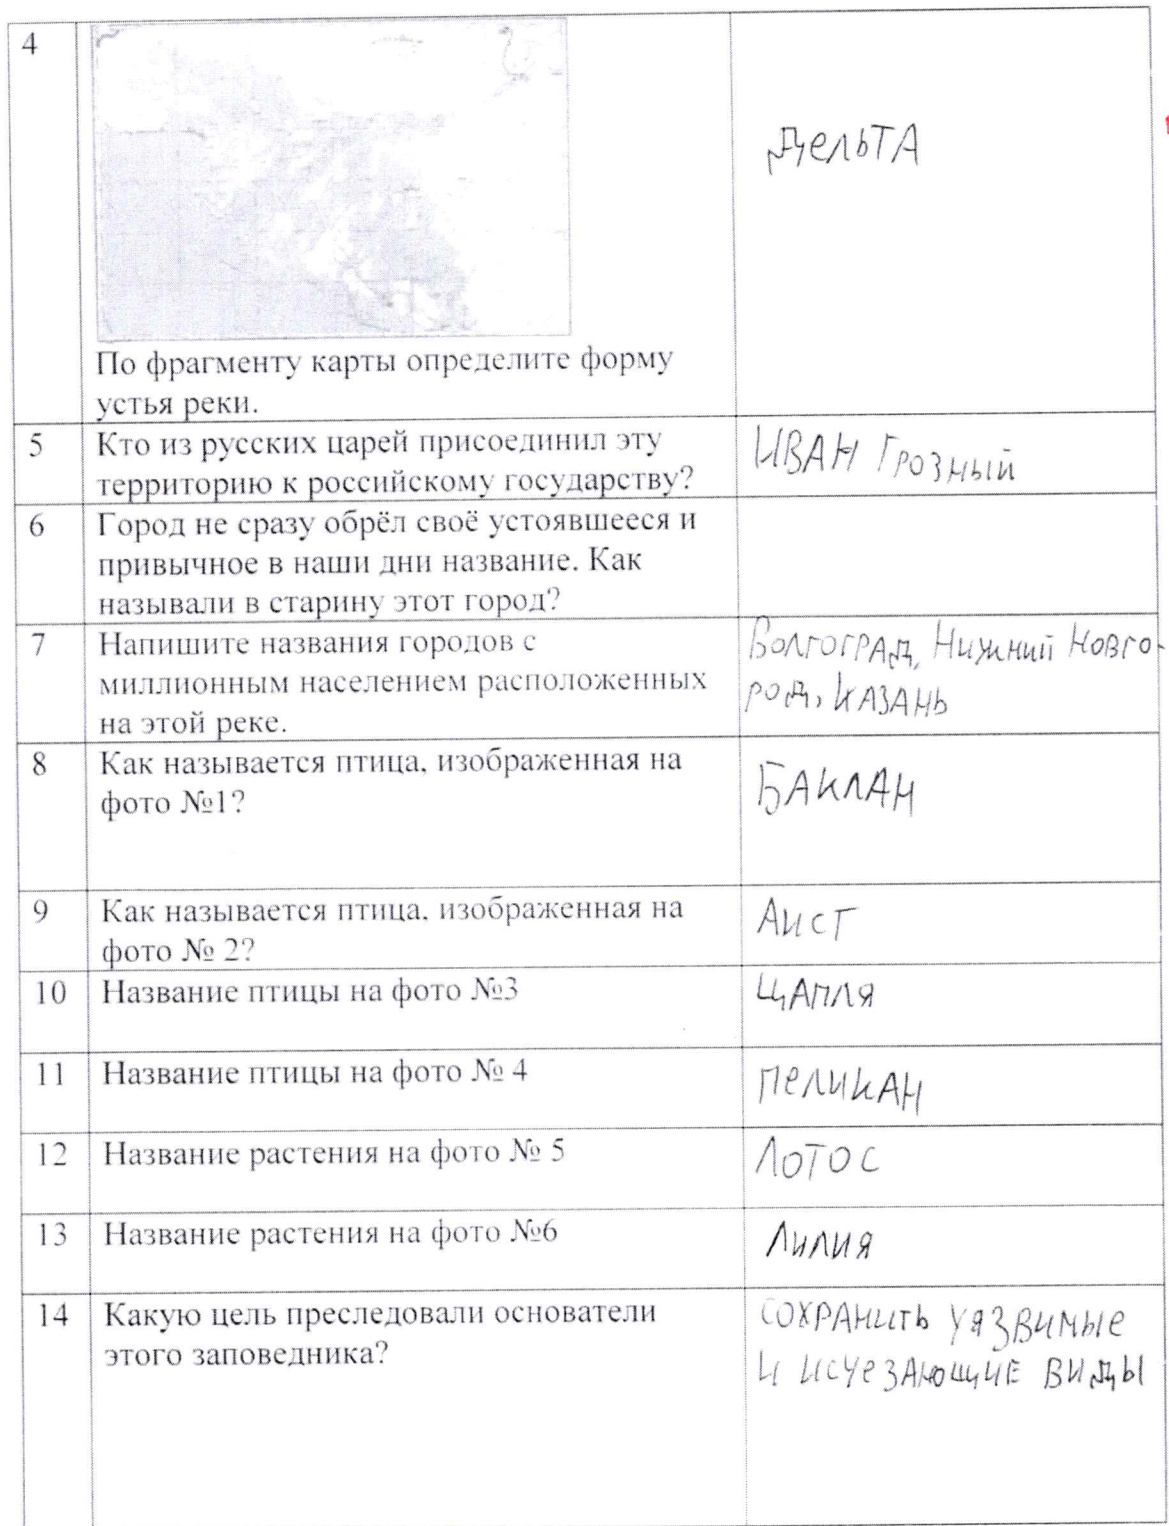 4
дельта
По фрагменту карты определите форму
устья реки.
5
Кто из русских царей присоединил эту
территорию к российскому государству?
Иван Грозный
6
Город не сразу обрёл своё устоявшееся и
привычное в наши дни название. Как
называли в старину этот город?
7
Напишите названия городов с
миллионным населением расположенных
на этой реке.
Волгоград, Нижний Новго-
род, Казань
8
Как называется птица, изображенная на
фото №1?
Баклан
9
Как называется птица, изображенная на
фото № 2?
Аист
10
Название птицы на фото №3
цапля
11
Название птицы на фото № 4
пеликан
12
Название растения на фото № 5
Лотос
13
Название растения на фото №6
Лилия
14
Какую цель преследовали основатели
этого заповедника?
сохранить уязвимые
и исчезающие виды